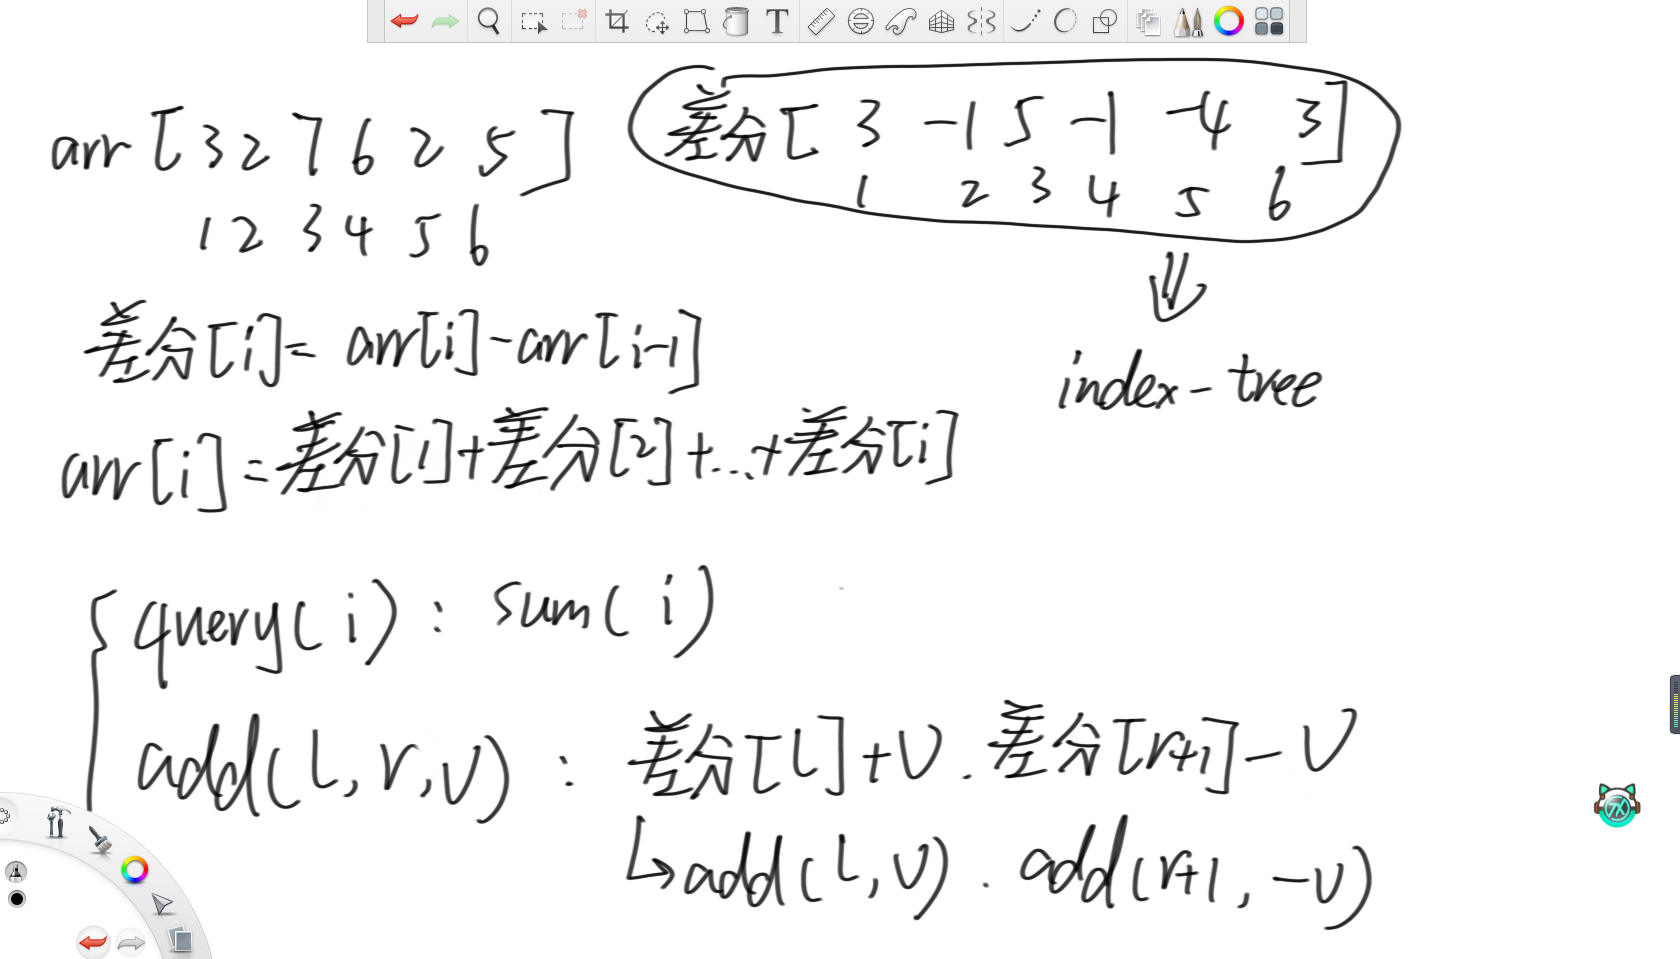 arr [ 3 2 7 6 2 5 ]
1 2 3 4 5 6
差分 [ 3 -1 5 -1 -4 3 ]
1 2 3 4 5 6
index-tree
差分[i]= arr[i]-arr[i-1]
arr[i]=差分[1]+差分[2]+...+差分[i]
query(i): sum(i)
add(l,r,v): 差分[l]+v. 差分[r+1]-v
↳add(l,v). add(r+1,-v)